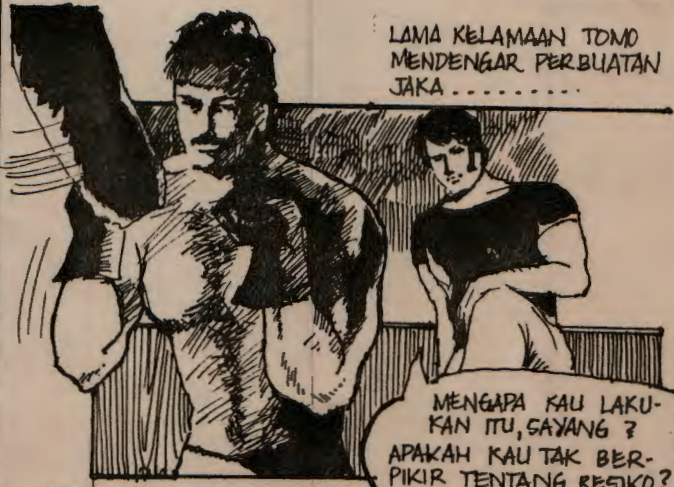 LAMA KELAMAAN TOMO
MENDENGAR PERBUATAN
JAKA ..........
MENGAPA KAU LAKU-
KAN ITU, SAYANG ?
APAKAH KAU TAK BER-
PIKIR TENTANG RESIKO?